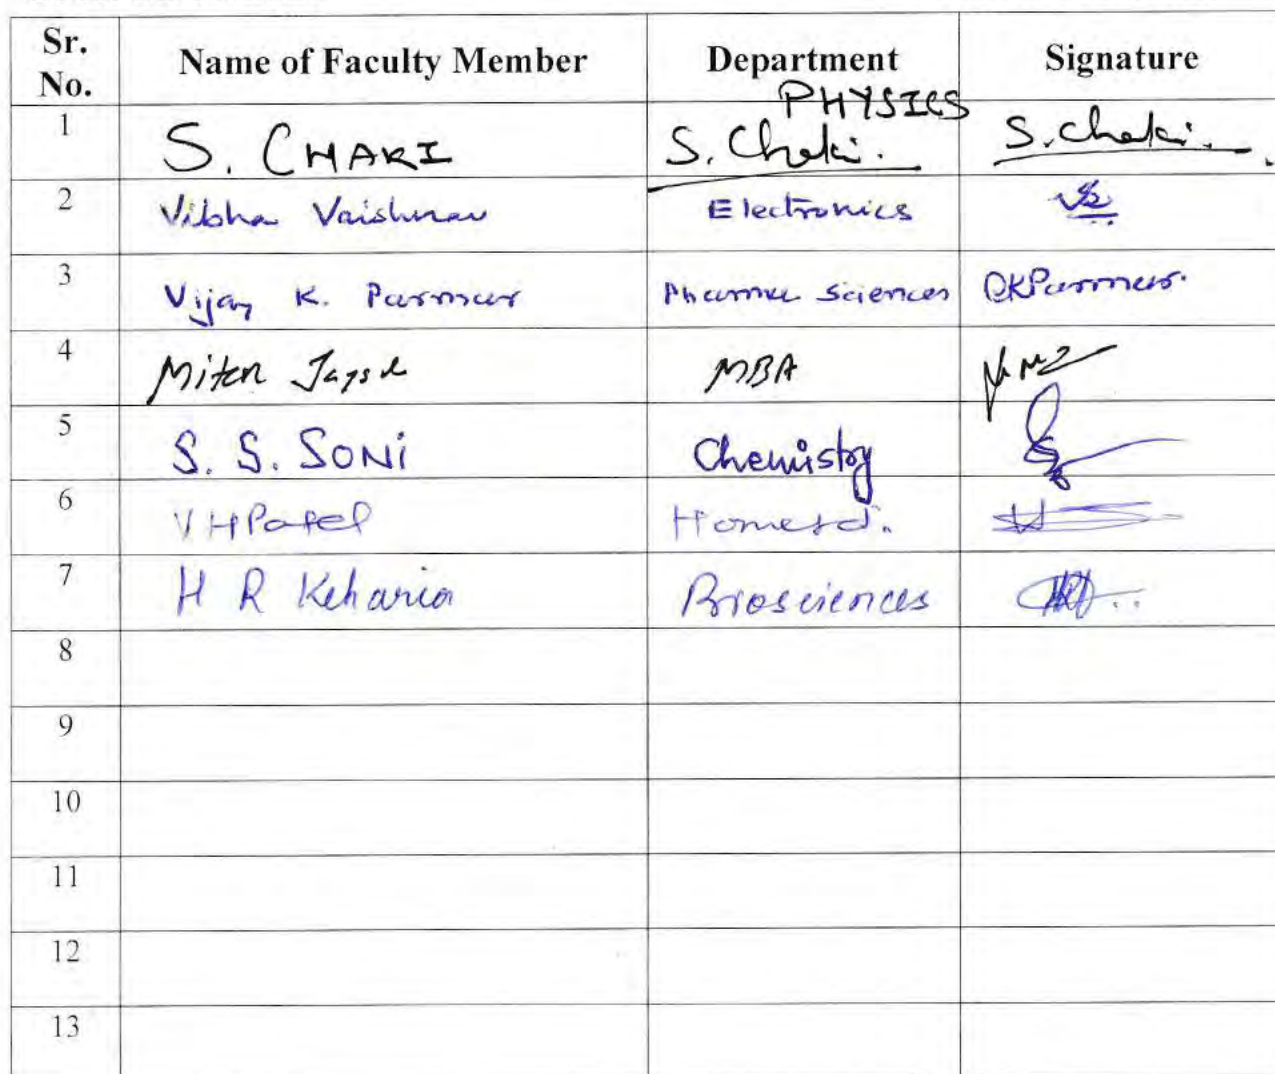 Sr. No. Name of Faculty Member Department Signature
1 S. CHAKI PHYSICS S. Chaki. S. Chaki.
2 Vibha Vaishnav Electronics
3 Vijay K. Parmar Pharma Sciences Parmar.
4 MBA
5 S. S. SONI Chemistry
6 V H Patel Homesci.
7 H R Keharia Biosciences
8
9
10
11
12
13